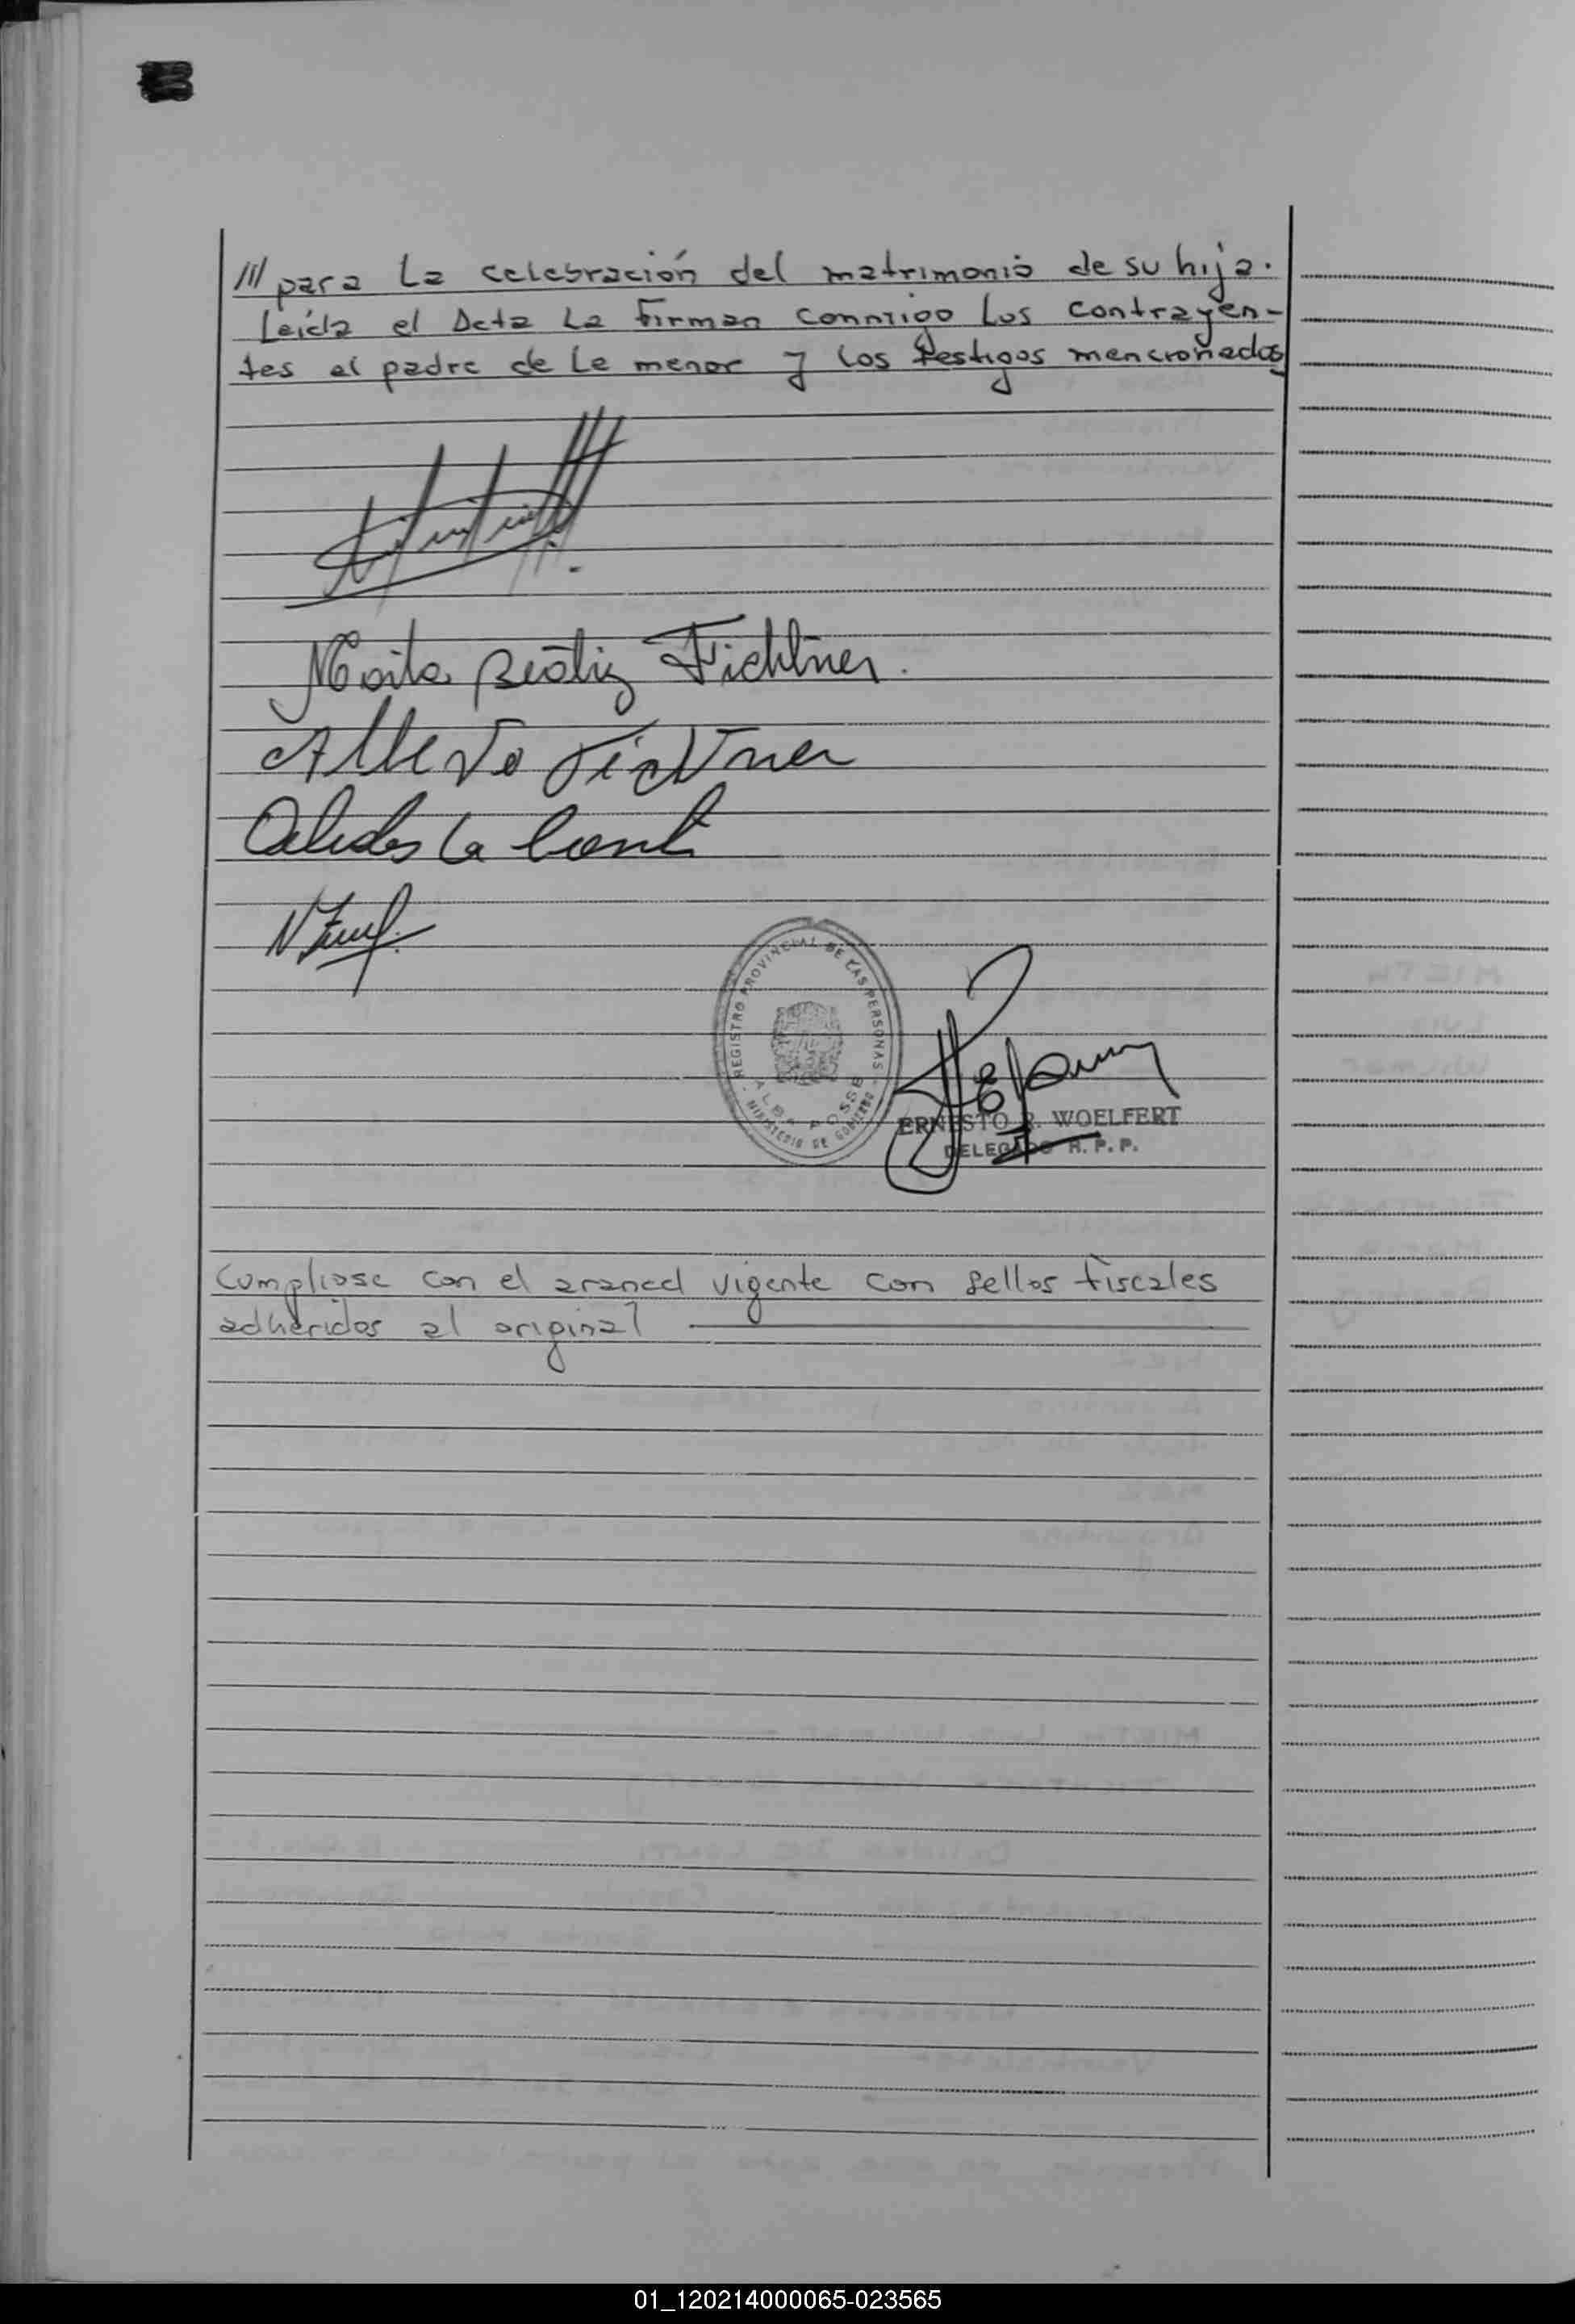 /// para La celebración del matrimonio de su hija.
Leída el Acta La Firman conmigo Los contrayen-
tes el padre de Le menor y los testigos mencionados
Marta Beatriz Fichtner.
Alberto Fichtner
REGISTRO PROVINCIAL DE LAS PERSONAS
ALBA POSSE
MINISTERIO DE GOBIERNO
ERNESTO R. WOELFERT
DELEGADO R. P. P.
Cumpliose con el arancel vigente con sellos fiscales
adheridos al original
01_120214000065-023565